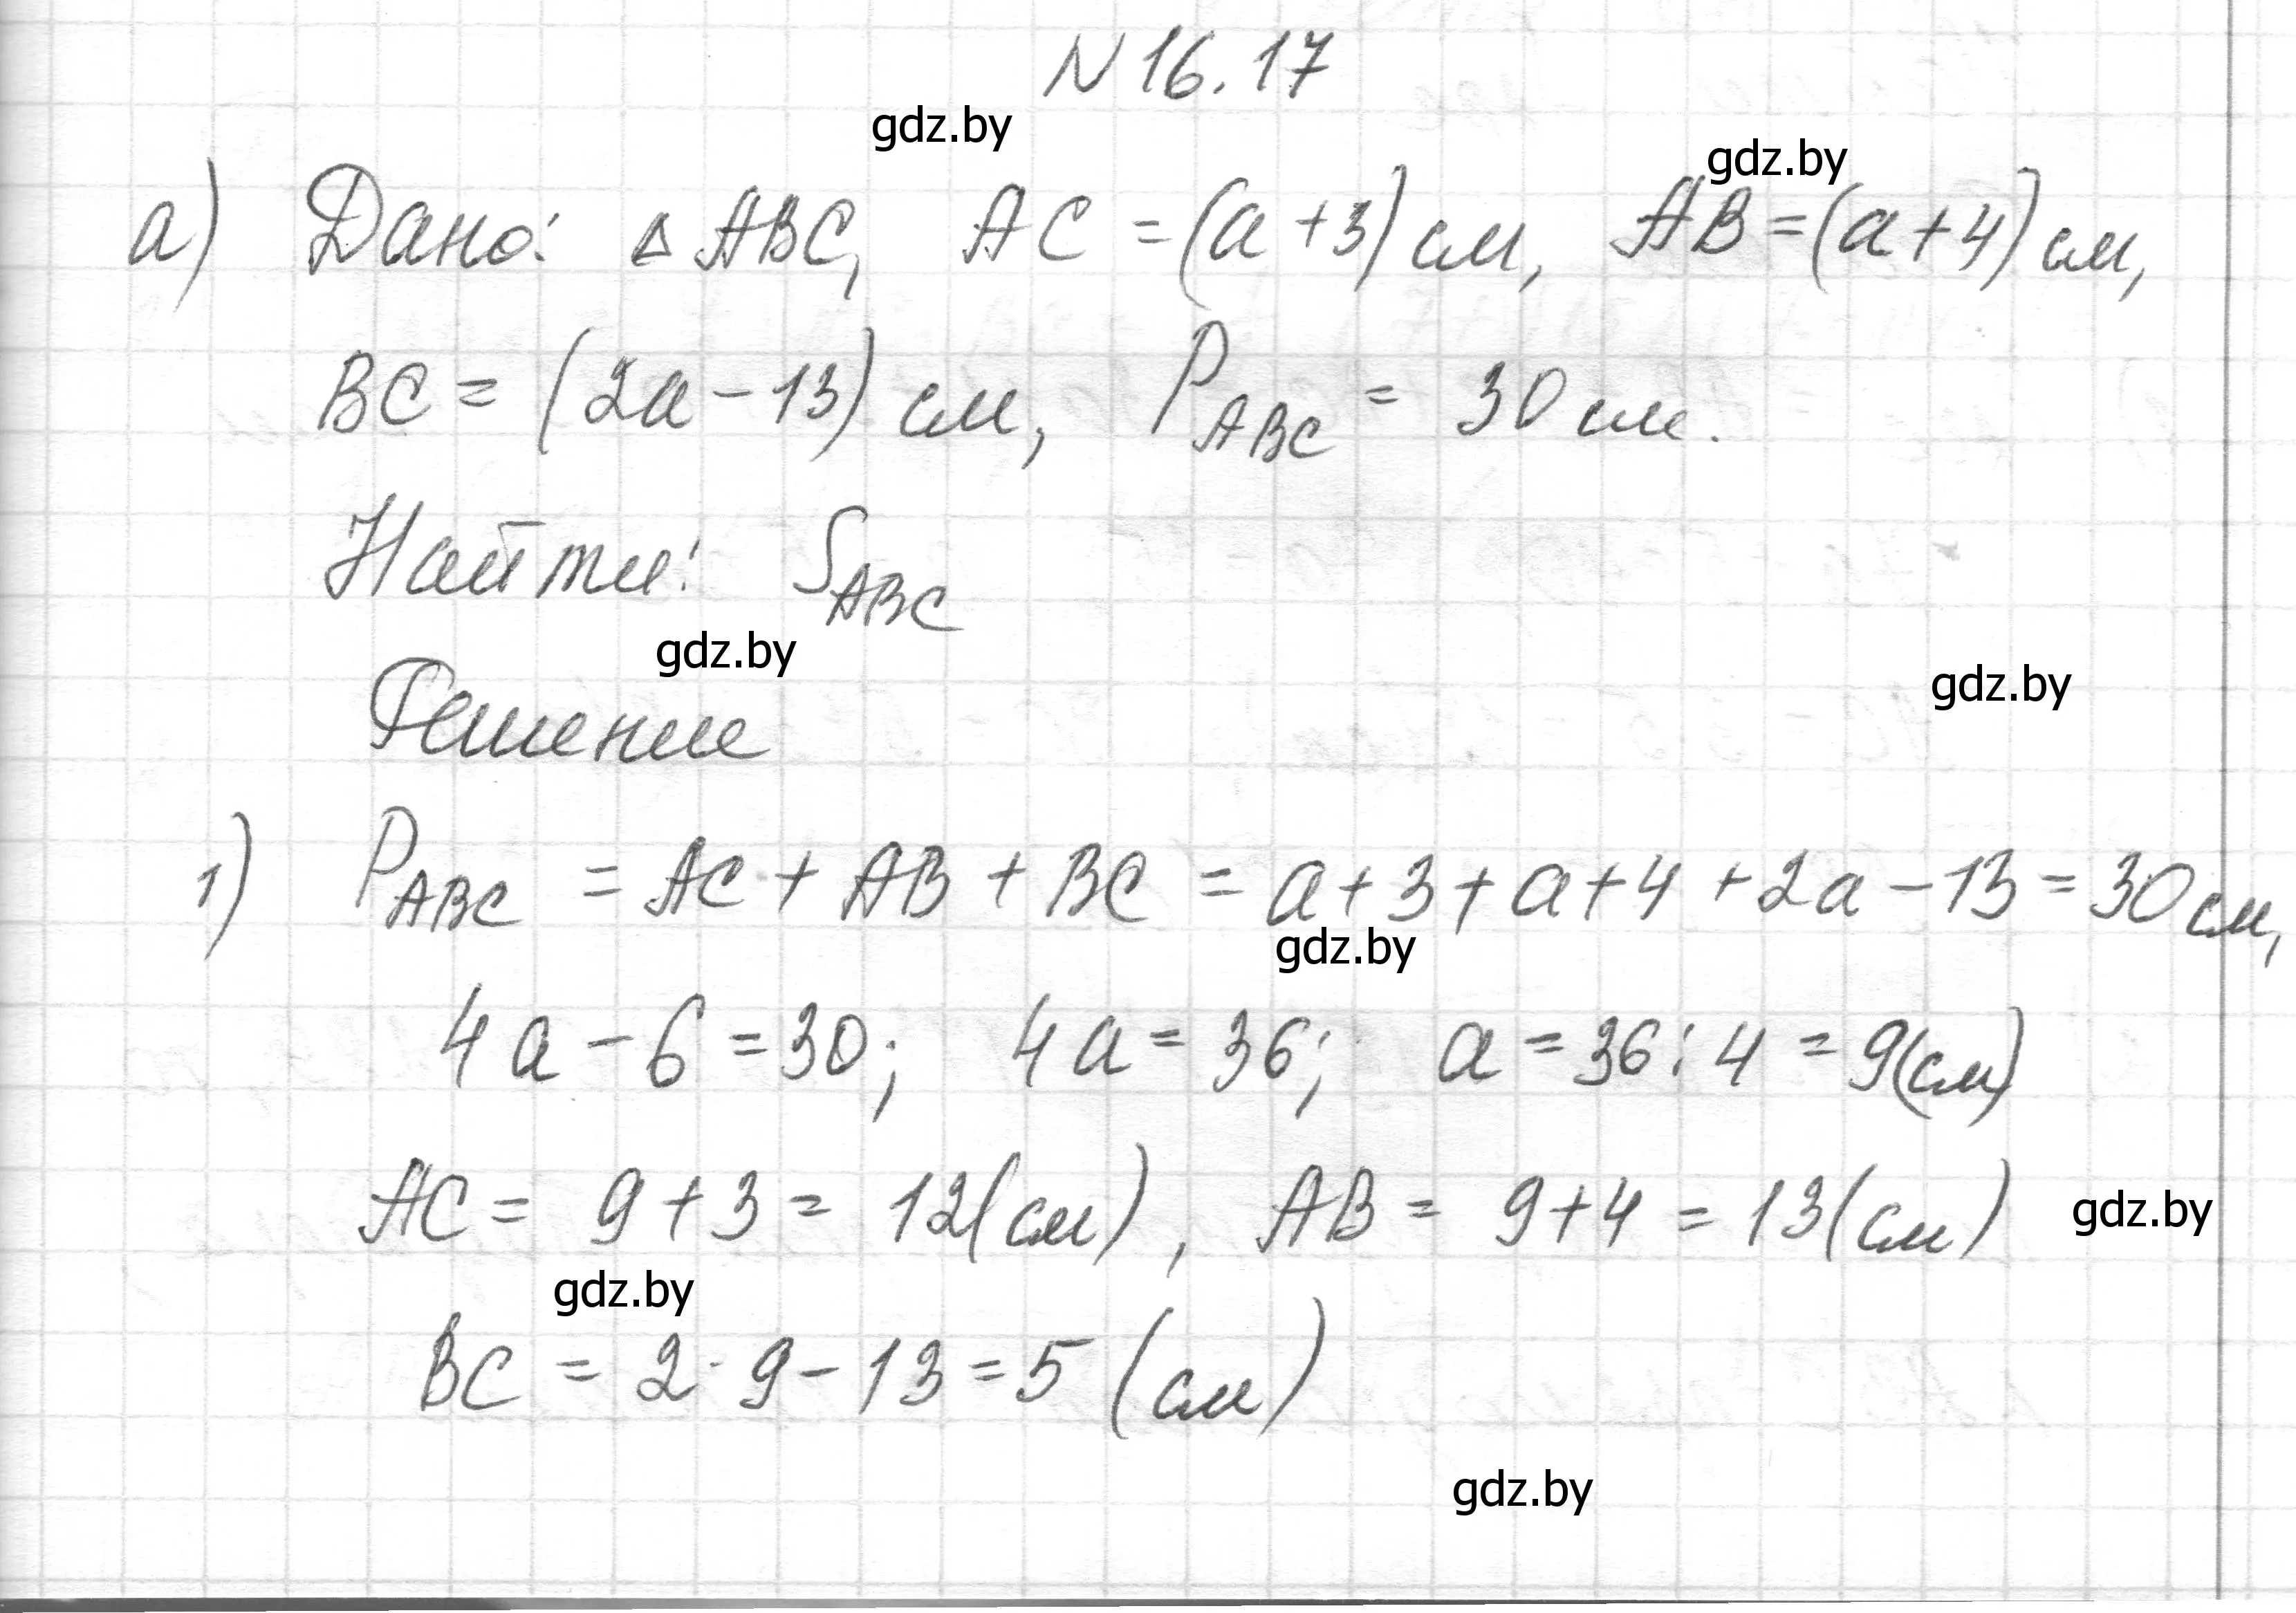 N 16.17
gdz.by
gdz.by
а) Дано: △ ABC, AC = (a+3) см, AB = (a+4) см,
BC = (2a - 13) см, P_ABC = 30 см.
Найти: S_ABC
gdz.by
gdz.by
Решение
1) P_ABC = AC + AB + BC = a+3+a+4+2a-13 = 30 см,
gdz.by
4a - 6 = 30; 4a = 36; a = 36 : 4 = 9(см)
AC = 9+3 = 12(см), AB = 9+4 = 13(см)
gdz.by
gdz.by
BC = 2·9-13 = 5 (см)
gdz.by